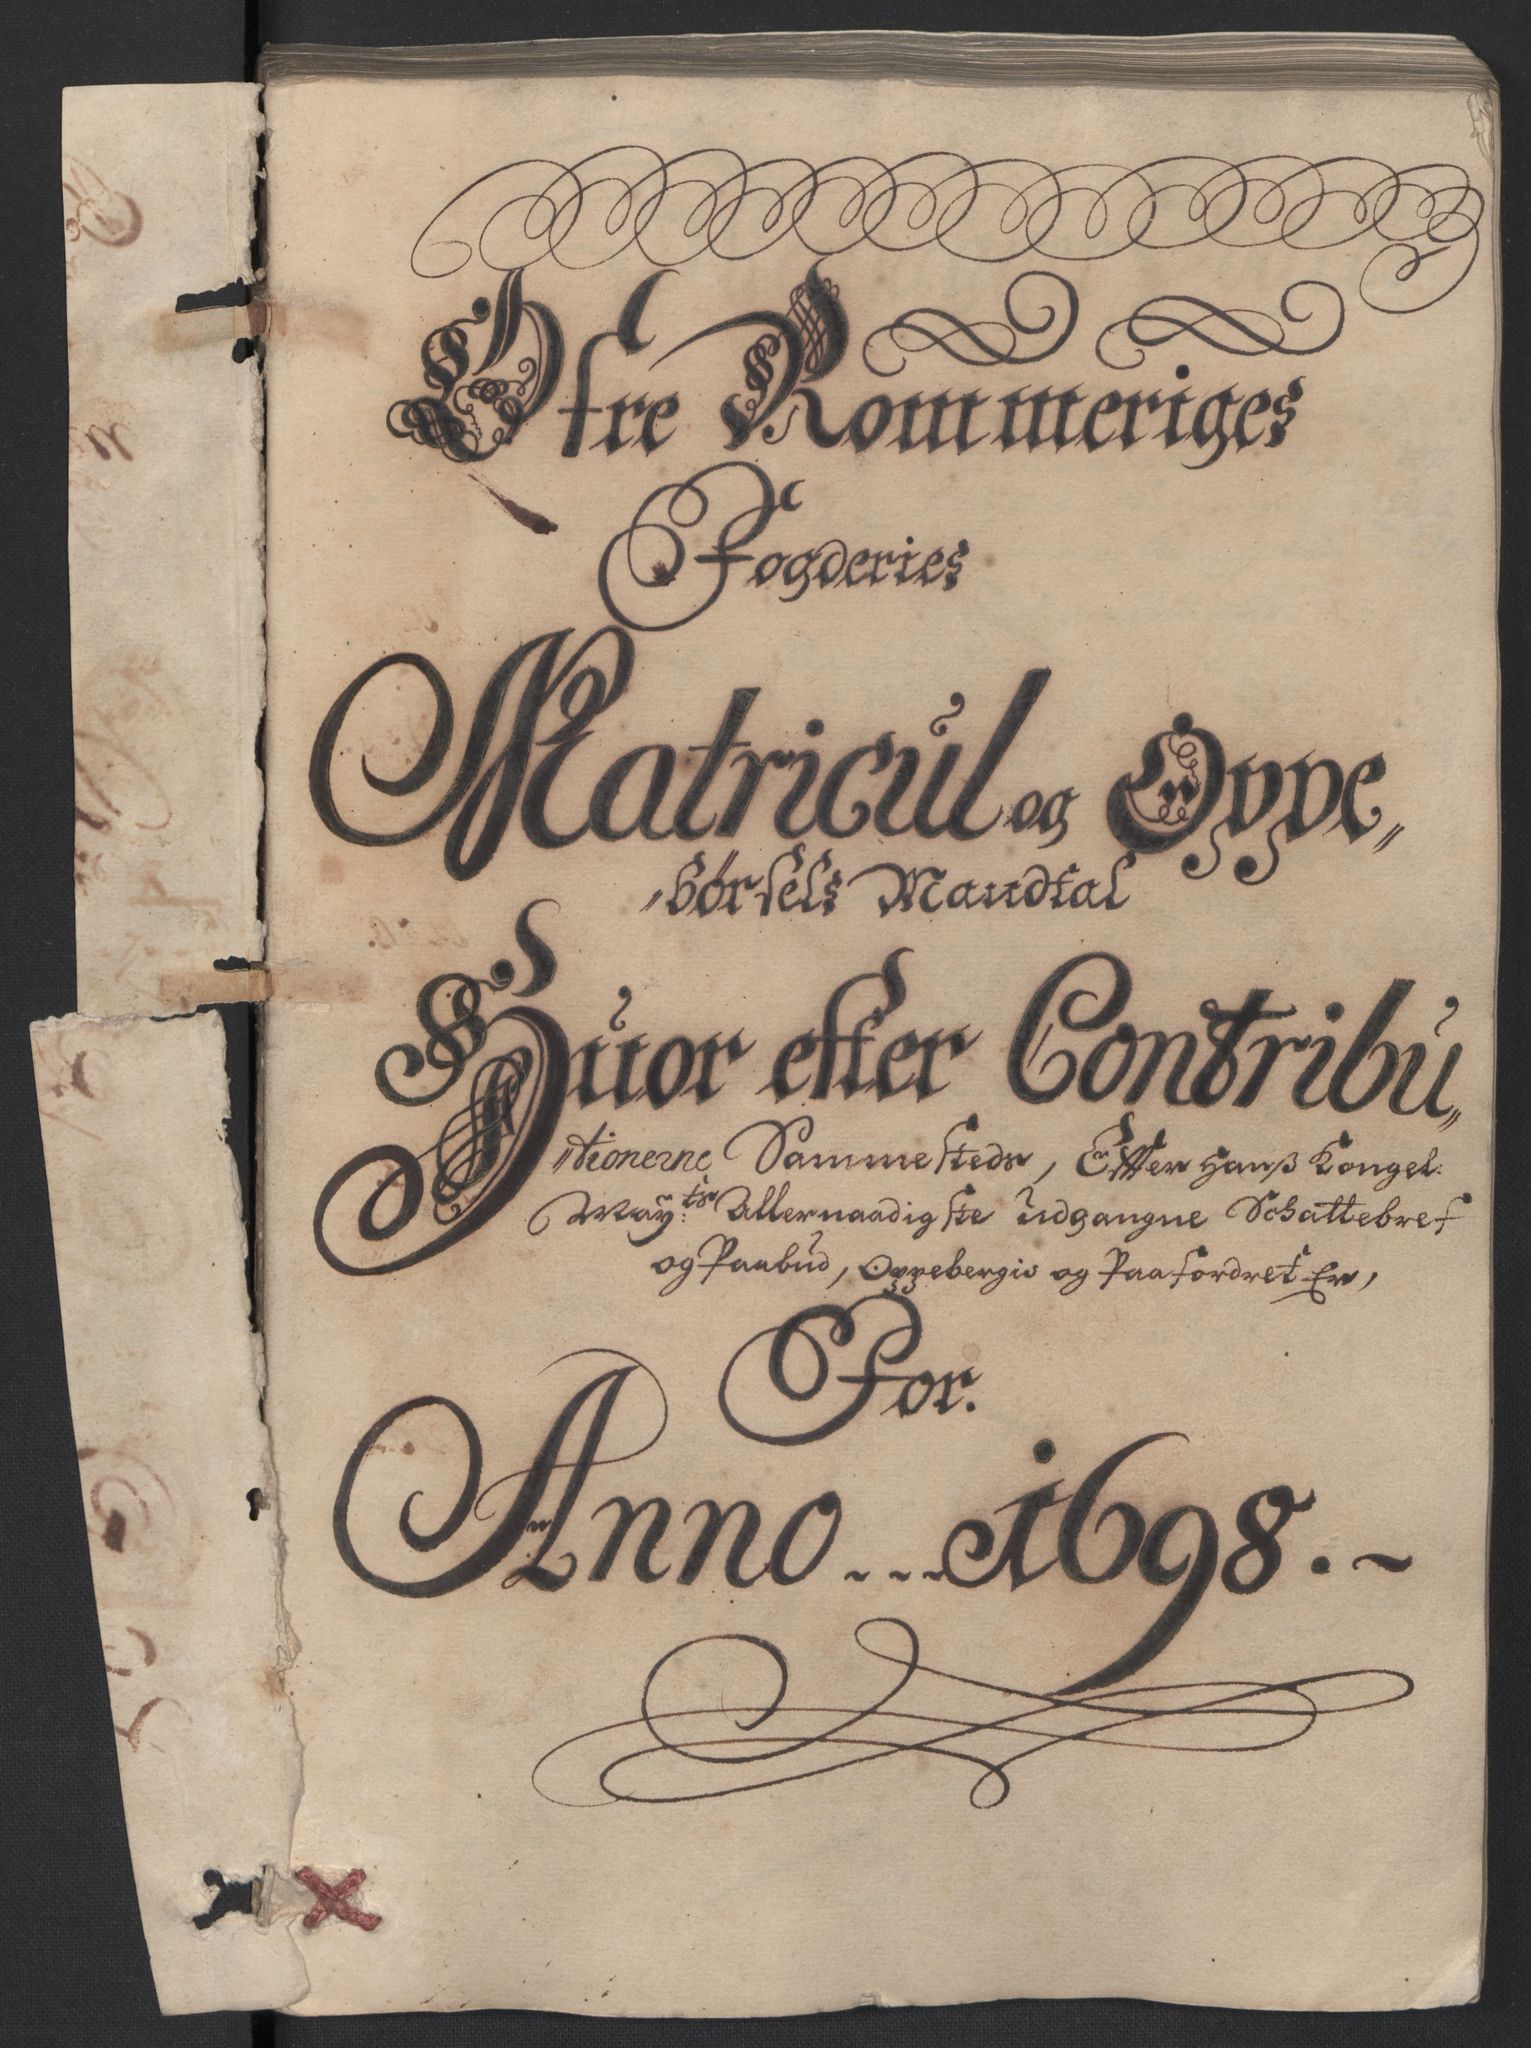 Øfre Rommeriges
Fogderies
Matricul og Oppe„
„børsels Mandtal
Huor effter Contribu„
„tionerne Sammesteds, Effter Hanß Kongel:
May:ts Allernaadigste udgangne Schattebref
og Paabud, Oppebergis og Paafordret Er,
For.
Anno...1698.~